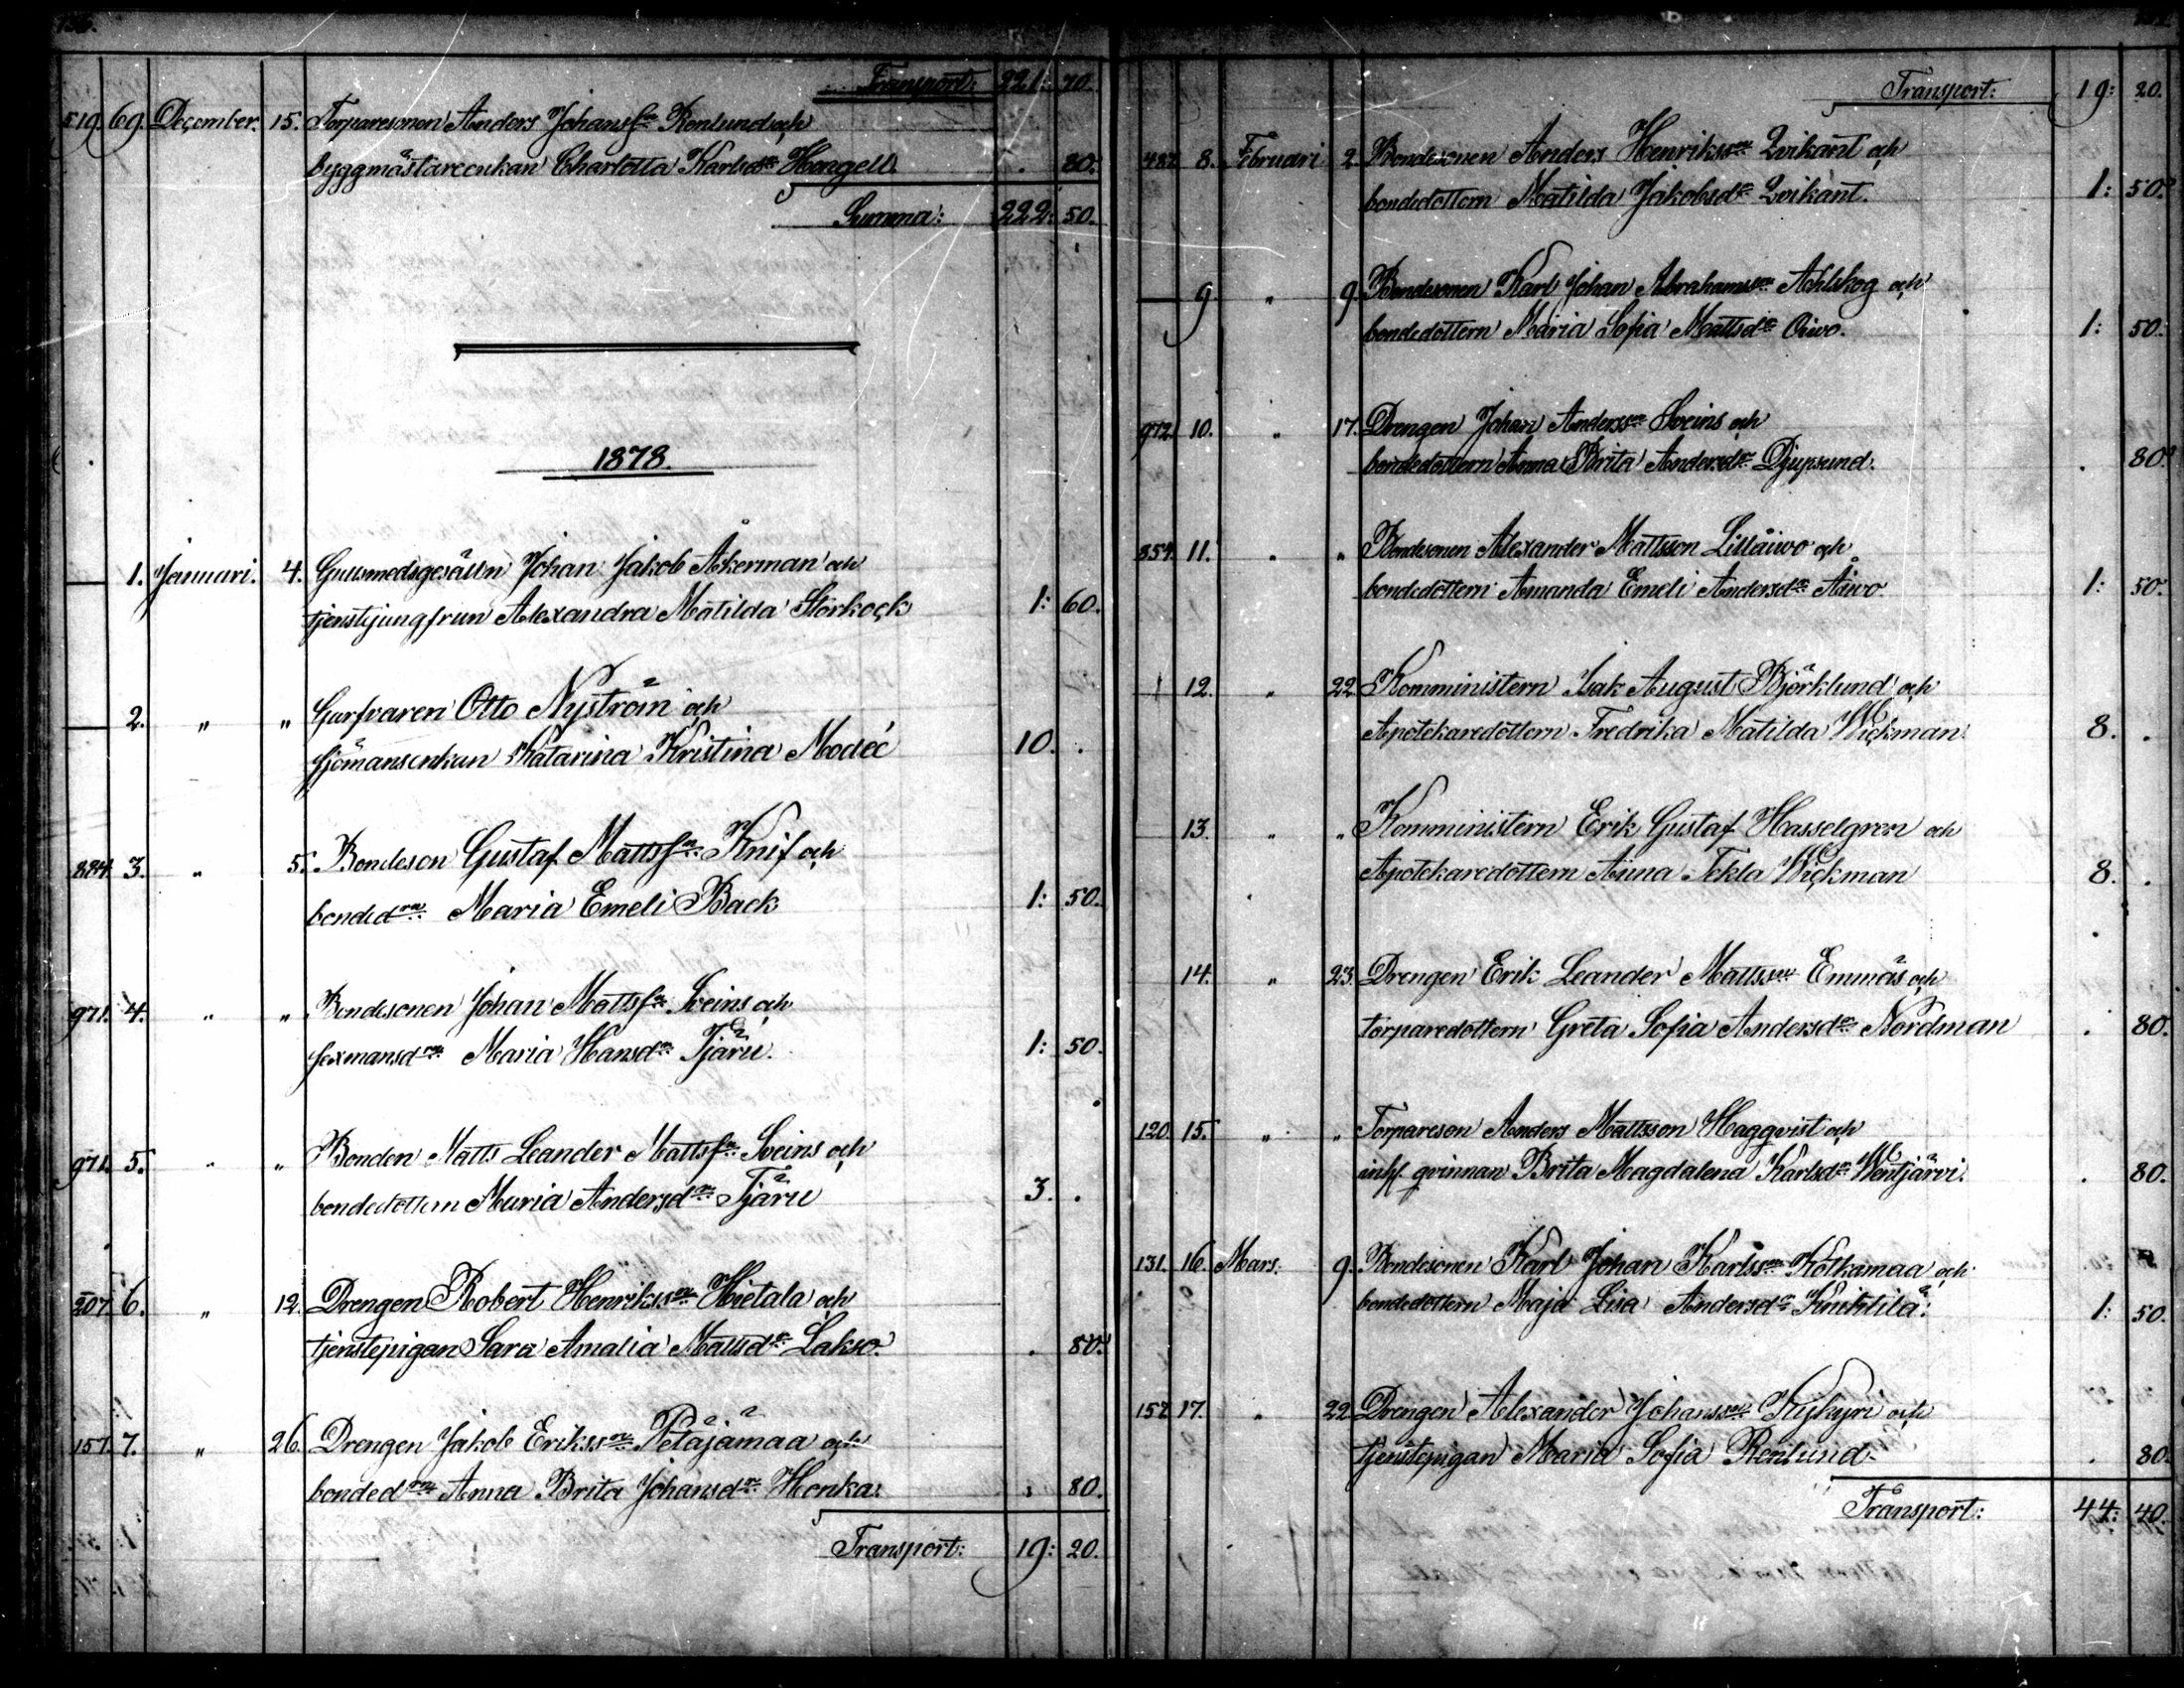 Transport: 221: 70.
519. 69. December. 15. Torparesonen Anders Johansson Renlund och
byggmästareenkan Charlotta Karlsdr Hongell . 80.
Summa: 222: 50.
1878.
1. Januari. 4. Gullsmedsgesälln Johan Jakob Åkerman och
tjenstejungfrun Alexandra Matilda Storkock 1: 60.
2. " " Garfvaren Otto Nyström och
sjömansenkan Katarina Kristina Modéé 10. .
884. 3. " 5. Bondeson Gustaf Mattssn Knif och
bondedrn Maria Emeli Back 1: 50.
971. 4. " " Bondesonen Johan Mattssn Sveins och
sexmansdrn Maria Hansdr Tjäru. 1: 50.
971. 5. " " Bonden Matts Leander Mattssn Sveins och
bondedottern Maria Andersdr Tjäru 3. .
207. 6. " 12. Drengen Robert Henrikssn Hietala och
tjenstepigan Sara Amalia Mattsdr Lakso. . 80.
157. 7. " 26. Drengen Jakob Erikssn Petäjämaa och
bondedrn Anna Brita Johansdr Honka. : 80.
Transport: 19: 20.
Transport: 19: 20.
487. 8. Februari 2. Bondesonen Anders Henriksson Qvikant och
bondedottern Matilda Jakobsdr Qvikant. 1: 50.
9. " 9. Bondesonen Karl Johan Abrahamsson Ahlskog och
bondedottern Maria Sofia Mattsdr Oivo. 1: 50.
972. 10. " 17. Drengen Johan Andersson Sveins och
bondedottern Anna Brita Andersdr Djupsund. . 80.
854. 11. " " Bondesonen Alexander Mattsson Lillåivo och
bondedottern Amanda Emeli Andersdr Åivo. 1: 50.
12. " 22. Komministern Isak August Björklund och
Apotekaredottern Fredrika Matilda Wickman 8. .
13. " " Komministern Erik Gustaf Hasselgren och
Apotekaredottern Anna Tekla Wickman 8. .
14. " 23. Drengen Erik Leander Mattsson Emmäs och
torparedottern Greta Sofia Andersdr Nordman . 80.
120. 15. " " Torpareson Anders Mattsson Haggqvist och
inhs. qvinnan Brita Magdalena Karlsdr Wentjärvi. . 80.
131. 16. Mars. 9. Bondesonen Karl Johan Karlsson Kotkamaa och
bondedottern Maja Lisa Andersdr Knihtilä. 1: 50.
157. 17. " 22. Drengen Alexander Johansson Kykyri och
tjenstepigan Maria Sofia Renlund. . 80.
Transport: 44: 40.